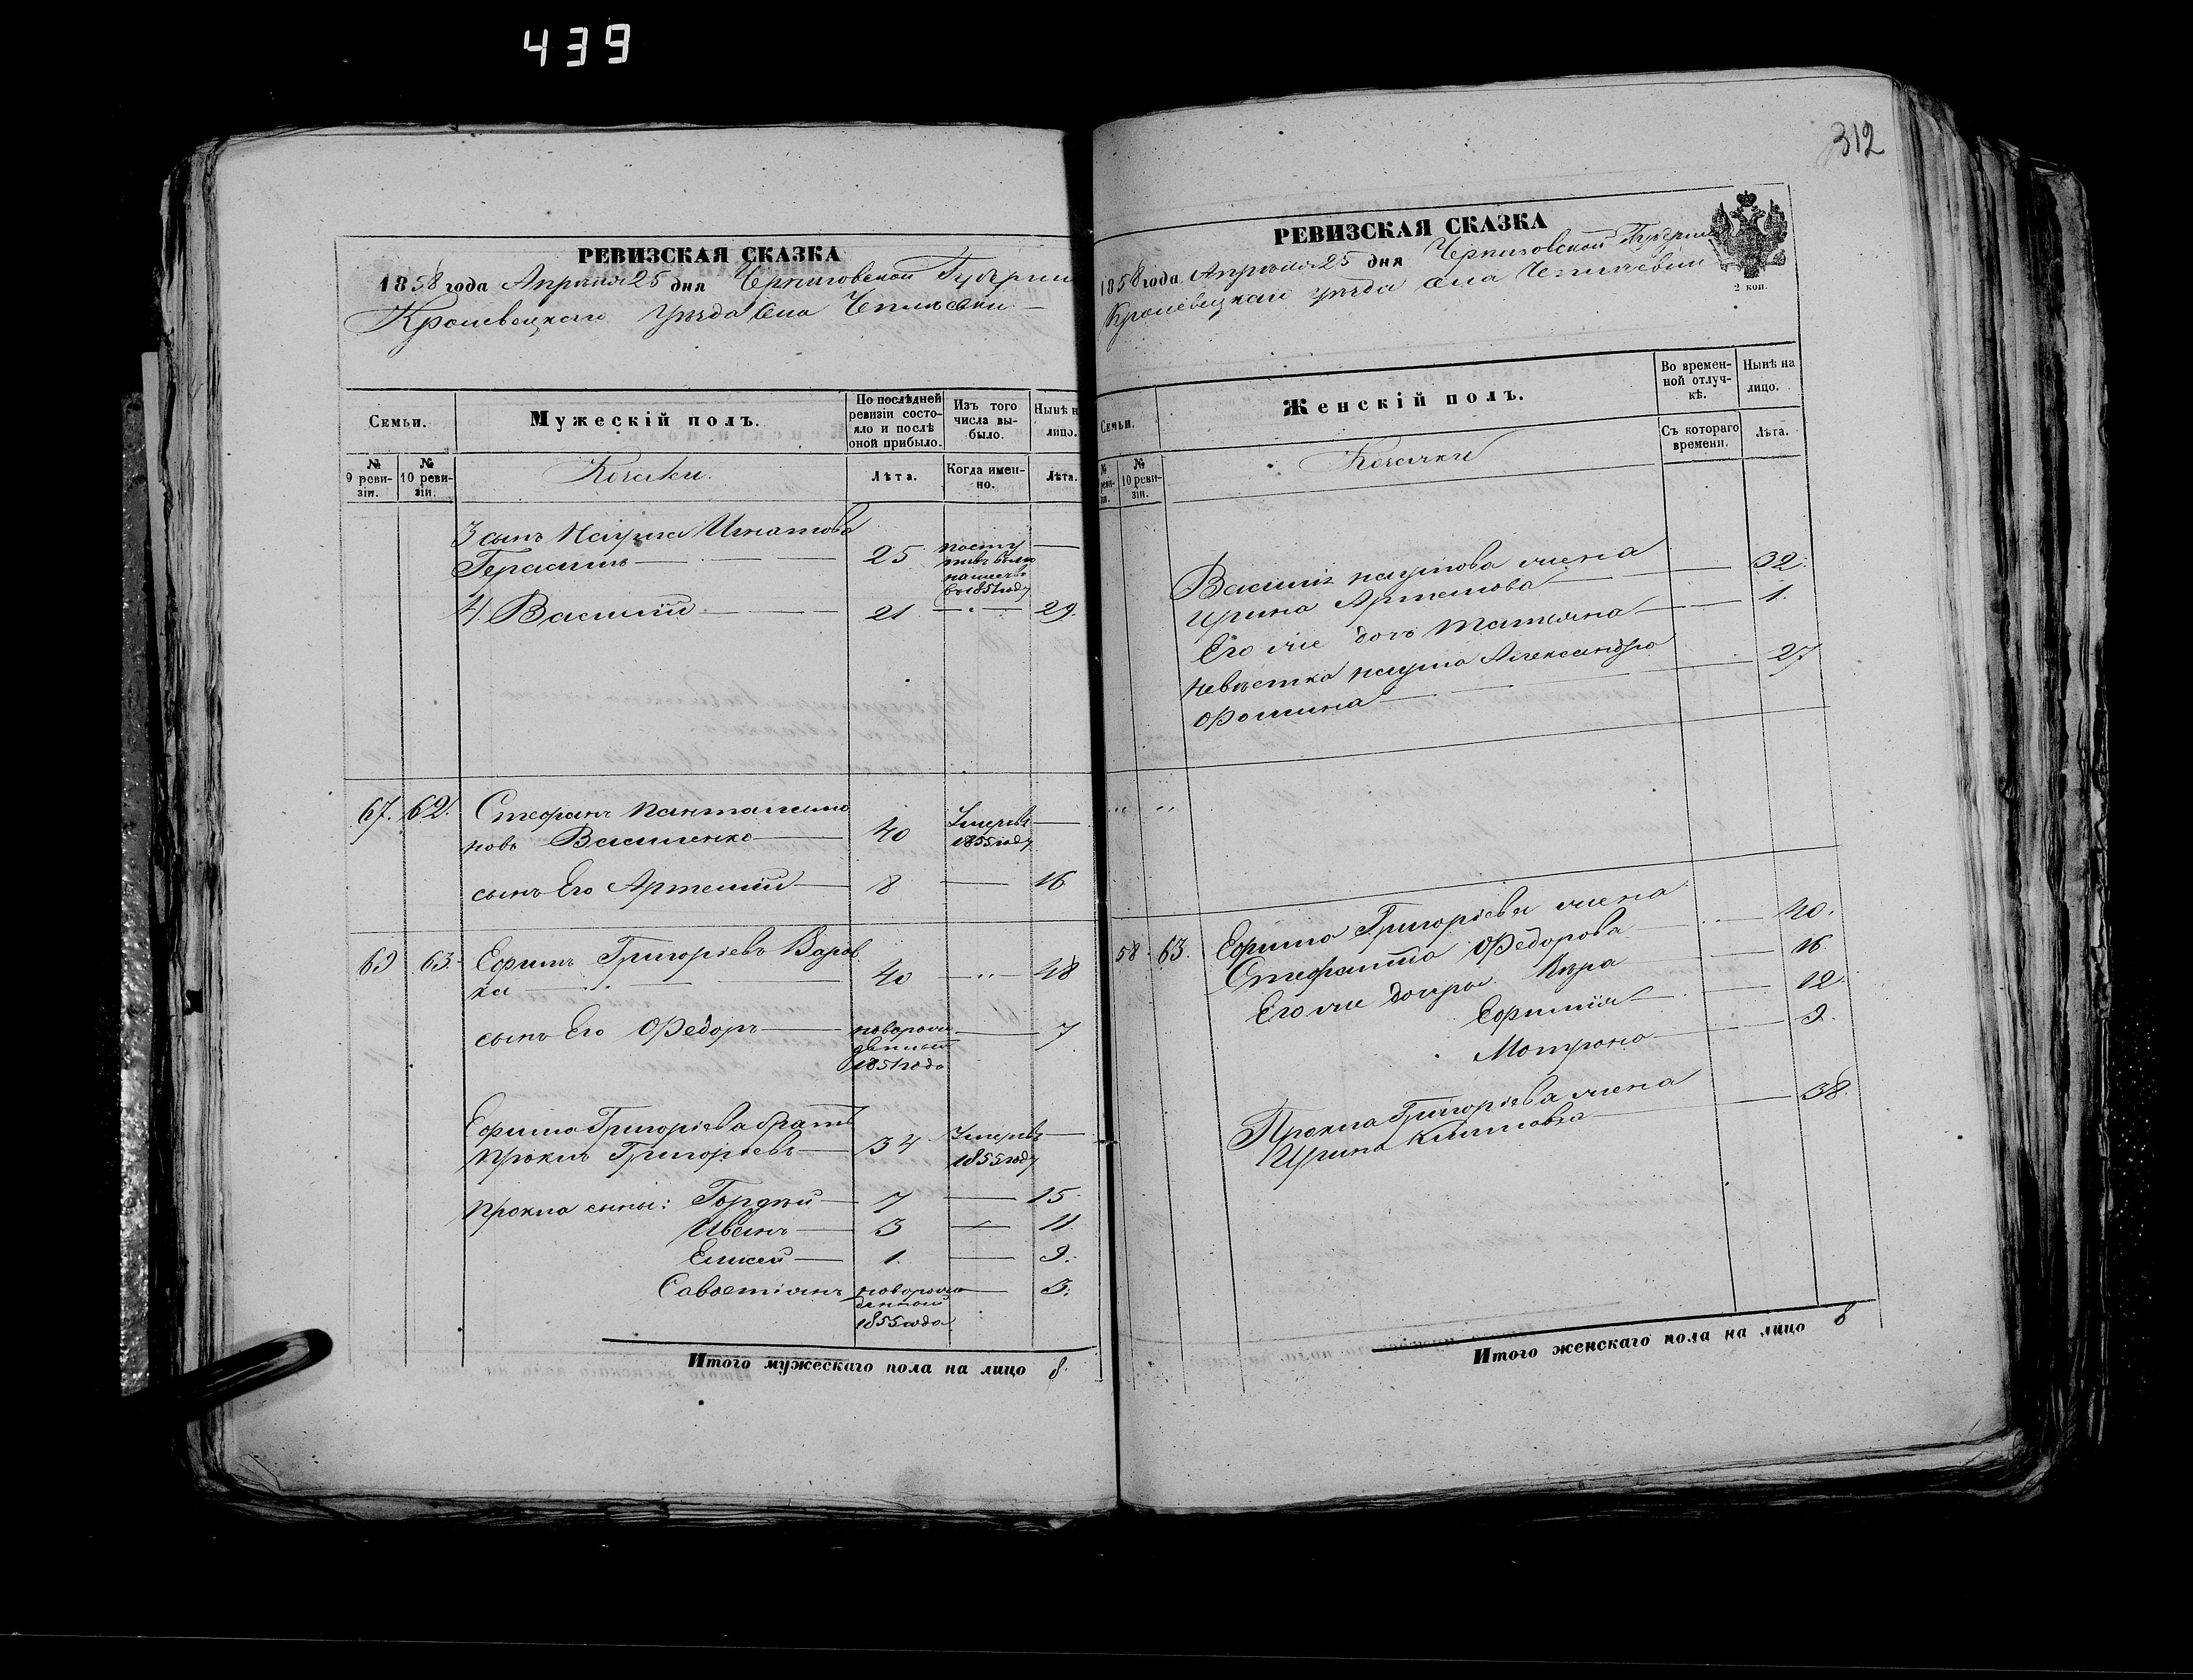 439
312
РЕВИЗСКАЯ СКАЗКА
1858 года Апрѣля 25 дня Черниговской Губерніи
Кролевецкаго уѣзда села Чеплѣевки
Семьи.
Мужескій полъ.
По послѣдней ревизіи состояло и послѣ оной прибыло.
Изъ того числа выбыло.
Нынѣ н лицо.
№ 9 ревизіи.
№ 10 ревизіи.
Козаки.
Лѣта.
Когда именно.
Лѣта.
3 сынъ Наума Игнатова
Герасимъ 25 въ 1851 году
4. Василій 21 29.
67. 62. Стефанъ Пантелимо
новъ Василенко 40 Умеръ въ 1855 году
сынъ Его Артемій 8 16
69 63. Ефимъ Григоріевъ Варав
ка 40 48
сынъ Его Федоръ новорож
денный 7
1851 года
Ефима Григоріева братъ
Прокпъ Григоріевъ 34 Умеръ въ 1855 году
Прокпа сыны: Гордѣй 7 15.
Иванъ 3 11.
Елисей 1. 9.
Савостіянъ новорож 3.
денный
1855 года
Итого мужескаго пола на лицо 8.
РЕВИЗСКАЯ СКАЗКА
1858 года Апрѣля 25 дня Черниговской Губерніи
Кролевецкаго уѣзда села Чеплѣевки
2 коп.
Семьи.
Женскій полъ.
Во временной отлучкѣ.
Нынѣ на лицо.
№ реви- зіи.
№ 10 ревизіи.
Козачки
Съ котораго времени.
Лѣта.
Василія Наумова жена
Ирина Артемова 32.
Его же дочь Татіяна 1.
Невѣстка Наума Александра
Фомина 27
58. 63. Ефима Григоріева жена
Федорова 40.
Его же дочери Вѣра 16.
Ефимія 12.
Мотрона 9.
Григоріева жена
Ирина Климова 38.
Итого женскаго пола на лицо 8